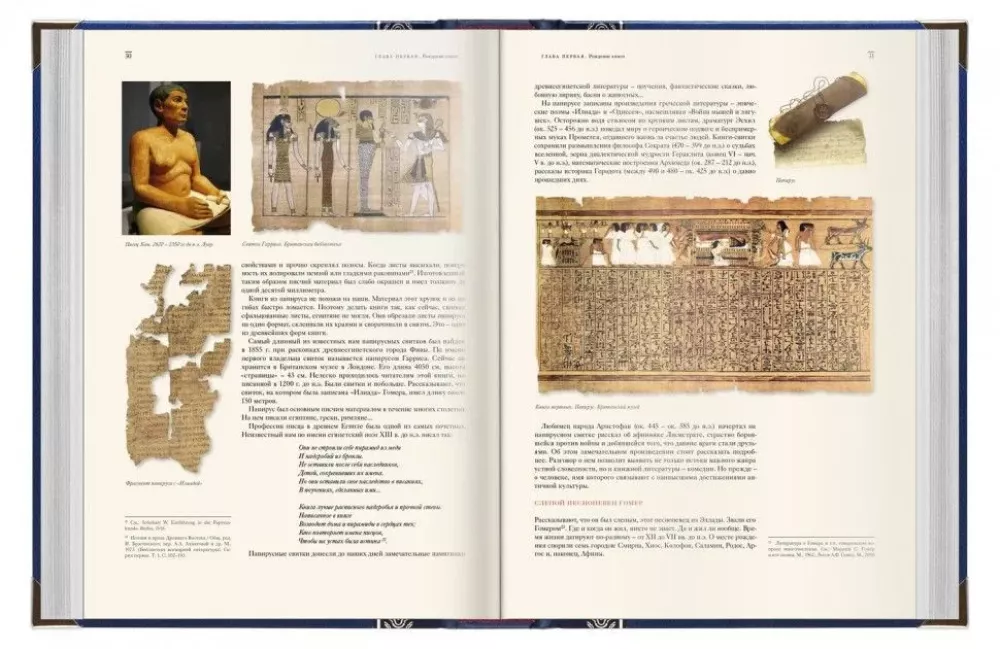 30
ГЛАВА ПЕРВАЯ. Рождение книги
Писец Каи. Лувр
Свиток Гарриса. Британская библиотека
Фрагмент папируса с «Илиадой»
свойствами и прочно скреплял полосы. Когда листы высыхали,
ность их полировали пемзой или гладкими раковинами
таким образом писчий материал был слабо окрашен и имел толщину
одной десятой миллиметра.
Книги из папируса не похожи на наши. Материал этот хрупок и на
сгибах быстро ломается. Поэтому делать книги так, как сейчас,
сфальцованные листы, египтяне не могли. Они обрезали листы папируса
на один формат, склеивали их краями и сворачивали в свиток. Это – одна
из древнейших форм книги.
Самый длинный из известных нам папирусных свитков был найден
в 1855 г. при раскопках древнеегипетского города Фивы. По имени
первого владельца свиток называется папирусом Гарриса. Сейчас он
хранится в Британском музее в Лондоне. Его длина 4050 см, высота
«страницы» – 43 см. Нелегко приходилось читателям этой книги,
писанной в 1200 г. до н.э. Были свитки и побольше. Рассказывают, что
свиток, на котором была записана «Илиада» Гомера, имел длину
150 метров.
Папирус был основным писчим материалом в течение многих столетий.
На нем писали египтяне, греки, римляне...
Профессия писца в древнем Египте была одной из самых почетных.
Неизвестный нам по имени египетский поэт XIII в. до н.э. писал так:
Они не строили себе пирамид из меди
И надгробий из бронзы.
Не оставили после себя наследников,
Детей, сохранивших их имена.
Но они оставили свое наследство в писаниях,
В поучениях, сделанных ими...
Книга лучше расписного надгробья и прочной стены.
Написанное в книге
Возводит дома и пирамиды в сердцах тех,
Кто повторяет имена писцов,
Чтобы на устах была истина
Папирусные свитки донесли до наших дней замечательные памятники
31
ГЛАВА ПЕРВАЯ. Рождение книги
древнеегипетской литературы – поучения, фантастические сказки, лю-
бовную лирику, басни о животных...
На папирусе записаны произведения греческой литературы – эпиче-
ские поэмы «Илиада» и «Одиссея», насмешливая «Война мышей и лягу-
шек». Осторожно водя стилосом по хрупким листам, драматург Эсхил
(ок. 525 – 456 до н.э.) поведал миру о героическом подвиге и беспример-
ных муках Прометея, отдавшего жизнь за счастье людей. Книги-свитки
сохранили размышления философа Сократа (470 – 399 до н.э.) о судьбах
вселенной, зерна диалектической мудрости Гераклита (конец VI – нач.
V в. до н.э.), математические построения Архимеда (ок. 287 – 212 до н.э.),
рассказы историка Геродота (между 490 и 480 – ок. 425 до н.э.) о давно
прошедших днях.
Папирус
Книга мертвых. Папирус. Британский музей
Любимец народа Аристофан (ок. 445 – ок. 385 до н.э.) начертал на
папирусном свитке рассказ об афинянке Лисистрате, страстно борю-
щейся против войны и добившейся того, что давние враги стали друзь-
ями. Об этом замечательном произведении стоит рассказать подроб-
нее. Разговор о нем позволит выявить не только истоки важного жанра
устной словесности, но и книжной литературы – комедии. Но прежде –
о человеке, имя которого связывают с наивысшими достижениями ан-
тичной культуры.
СЛЕПОЙ ПЕСНОПЕВЕЦ ГОМЕР
Рассказывают, что он был слепым, этот песнопевец из Эллады. Звали его
Гомером. Где и когда он жил, никто не знает. Да и жил ли вообще. Вре-
мя жизни датируют по-разному – от XII до VII вв. до н.э. О месте рожде-
ния спорили семь городов: Смирна, Хиос, Колофон, Саламин, Родос, Ар-
гос и, наконец, Афины.